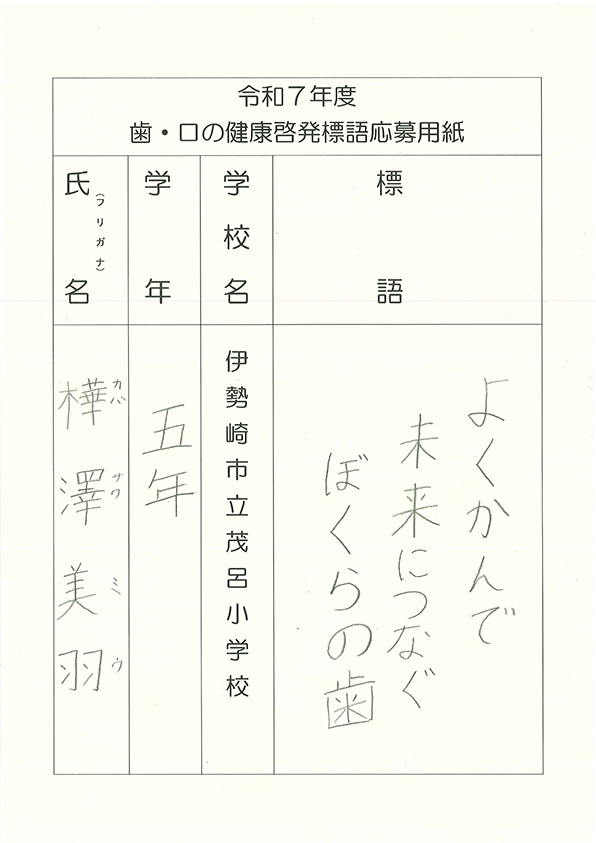 令和7年度
歯・口の健康啓発標語応募用紙
標語
よくかんで
未来につなぐ
ぼくらの歯
学校名
伊勢崎市立茂呂小学校
学年
五年
氏名
(フリガナ)
樺澤美羽
カバサワミウ